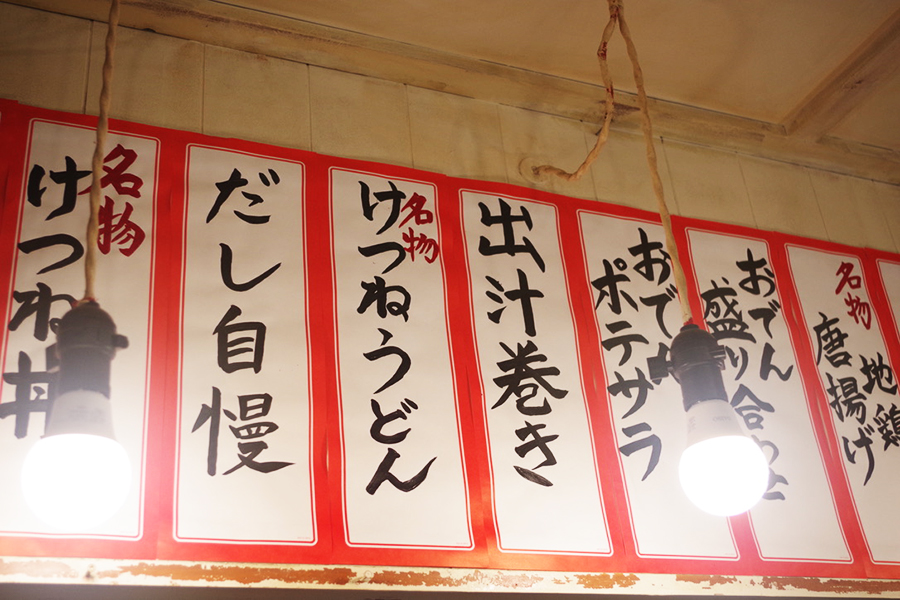 名物
けつね丼
だし自慢
名物
けつねうどん
出汁巻き
おでん
ポテサラ
おでん
盛り合わせ
名物
地鶏
唐揚げ